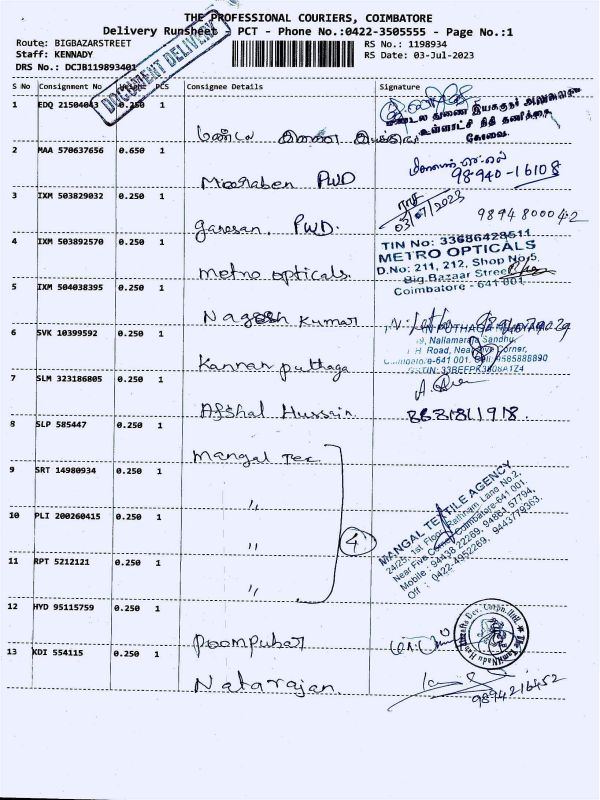 THE PROFESSIONAL COURIERS, COIMBATORE
Delivery Runsheet - PCT - Phone No.:0422-3505555 - Page No.:1
Route: BIGBAZARSTREET
RS No.: 1198934
Staff: KENNADY
RS Date: 03-Jul-2023
DRS No.: DCJB119893401
DOCUMENT DELIVERY
S No Consignment No PCS Consignee Details Signature
1 EDQ 21504043 0.250 1
மண்டல துணை இயக்குநர் அலுவலகம்
உள்ளாட்சி நிதி தணிக்கை
கோவை.
2 MAA 570637656 0.650 1 PWD
98940-16108
3 IXM 503829032 0.250 1 ganesan. PWD.
03/07/2023
9894800042
4 IXM 503892570 0.250 1 metro opticals.
TIN No: 33686428511
METRO OPTICALS
D.No: 211, 212, Shop No.5,
Big Bazaar Street
Coimbatore - 641 001.
5 IXM 504038395 0.250 1 Nagesh Kumar
6 SVK 10399592 0.250 1 Kannan puthaga
PUTHAGA
Nallamarai Sandhu,
H Road, Near Five Corner,
Coimbatore-641 001. 9585888890
7 SLM 323186805 0.250 1 Afshal Hussain
8 SLP 585447 0.250 1 Mangal Tex
9 SRT 14980934 0.250 1 "
10 PLI 200260415 0.250 1 "
4
11 RPT 5212121 0.250 1 "
MANGAL TEXTILE AGENCY
24/25, 1st Floor, Rathinam Lane No.2,
Near Five Corner, Coimbatore-641 001.
Mobile : 94438 22269, 94861 57794,
Off : 0422-4952269, 9443779363.
12 HYD 95115759 0.250 1 Poompuhar
13 KDI 554115 0.250 1 Natarajan.
9894216452